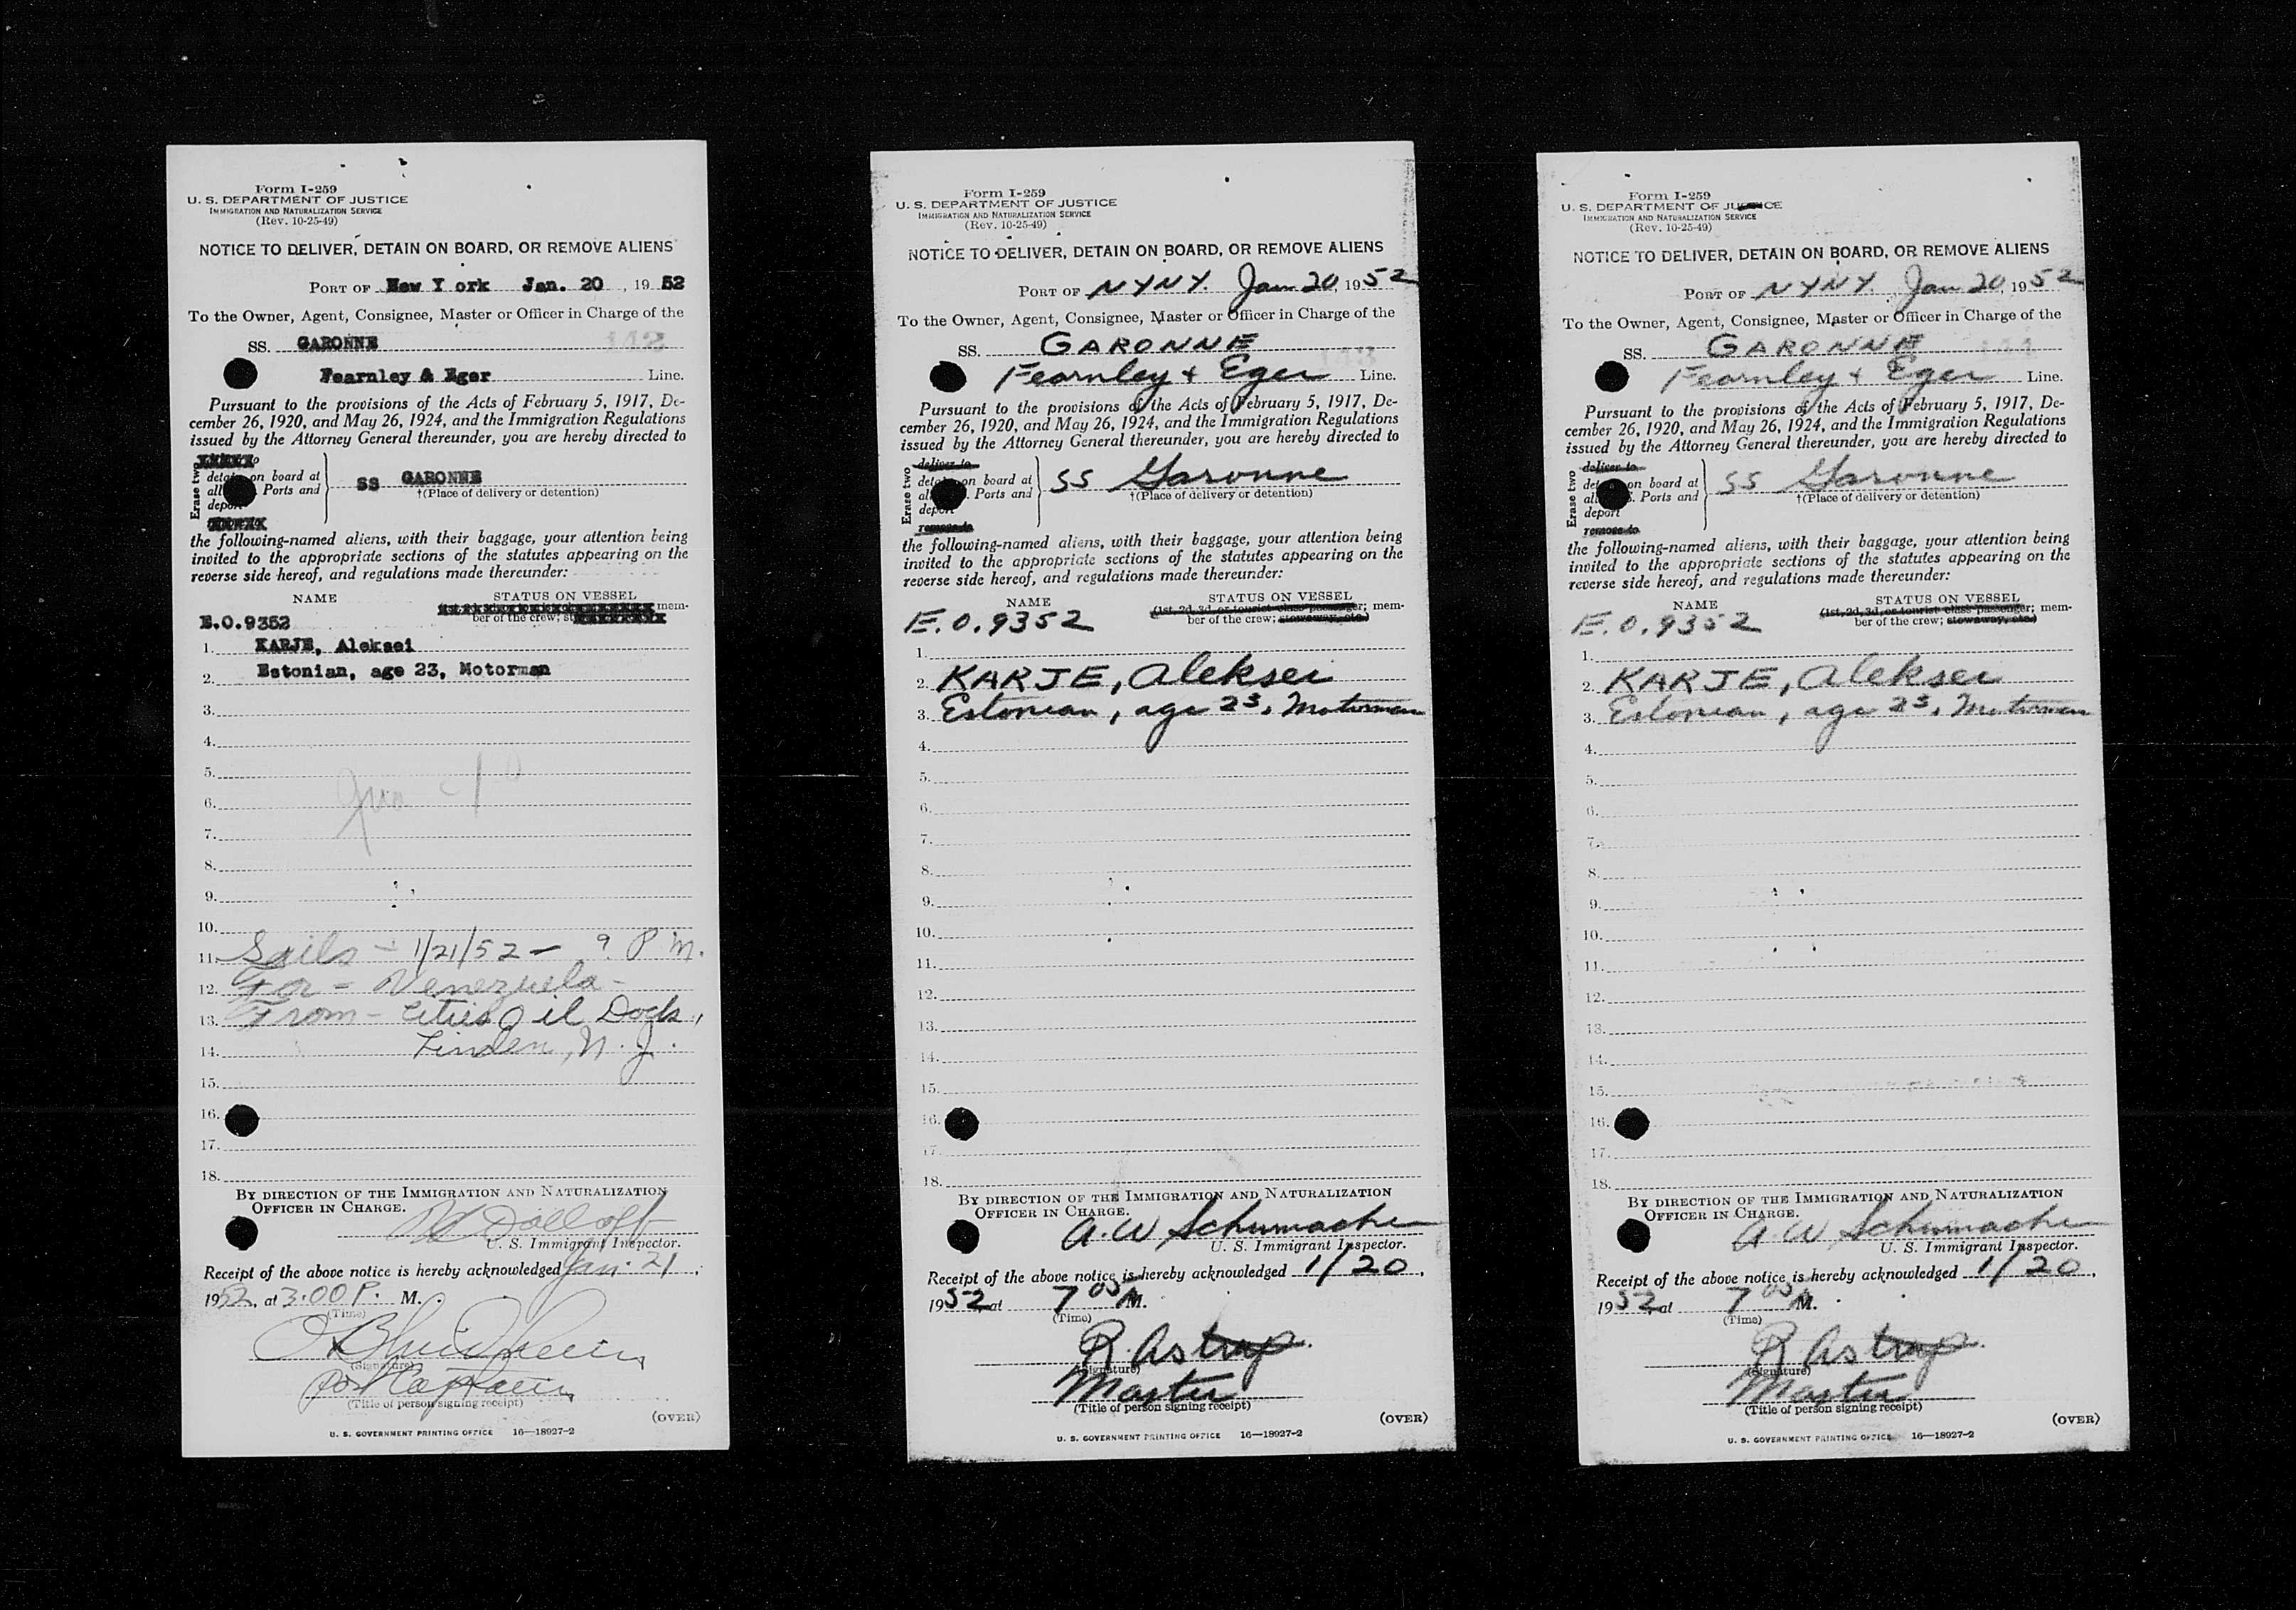 Form I-259
U. S. DEPARTMENT OF JUSTICE
IMMIGRATION AND NATURALIZATION SERVICE
(Rev. 10-25-49)
NOTICE TO DELIVER, DETAIN ON BOARD, OR REMOVE ALIENS
PORT OF New York Jan. 20, 19 52
To the Owner, Agent, Consignee, Master or Officer in Charge of the
SS. GARONNE 142
Fearnley & Eger Line.
Pursuant to the provisions of the Acts of February 5, 1917, De-
cember 26, 1920, and May 26, 1924, and the Immigration Regulations
issued by the Attorney General thereunder, you are hereby directed to
Erase two
on board at
Ports and
SS GARONNE
†(Place of delivery or detention)
the following-named aliens, with their baggage, your attention being
invited to the appropriate sections of the statutes appearing on the
reverse side hereof, and regulations made thereunder:
NAME STATUS ON VESSEL
mem-
ber of the crew;
E.O.9352
1. KARJE, Aleksei
2. Estonian, age 23, Motorman
3.
4.
5.
6.
7.
8.
9.
10.
11. Sails - 1/21/52 - 9 P M.
12. For - Venezuela -
13. From - Cities Oil Dock,
14. Linden, N. J.
15.
16.
17.
18.
BY DIRECTION OF THE IMMIGRATION AND NATURALIZATION
OFFICER IN CHARGE.
U. S. Immigrant Inspector.
Receipt of the above notice is hereby acknowledged Jan. 21,
1952, at 3:00 P. M.
(Time)
(Signature)
Port Captain
(Title of person signing receipt)
(OVER)
U. S. GOVERNMENT PRINTING OFFICE 16—18927-2
Form I-259
U. S. DEPARTMENT OF JUSTICE
IMMIGRATION AND NATURALIZATION SERVICE
(Rev. 10-25-49)
NOTICE TO DELIVER, DETAIN ON BOARD, OR REMOVE ALIENS
PORT OF NYNY. Jan 20, 19 52
To the Owner, Agent, Consignee, Master or Officer in Charge of the
SS. GARONNE 143
Fearnley + Eger Line.
Pursuant to the provisions of the Acts of February 5, 1917, De-
cember 26, 1920, and May 26, 1924, and the Immigration Regulations
issued by the Attorney General thereunder, you are hereby directed to
Erase two
deliver to
on board at
Ports and
deport
remove to
SS Garonne
†(Place of delivery or detention)
the following-named aliens, with their baggage, your attention being
invited to the appropriate sections of the statutes appearing on the
reverse side hereof, and regulations made thereunder:
NAME STATUS ON VESSEL
(1st, 2d, 3d, or tourist class passenger; mem-
ber of the crew; stowaway, etc.)
E.O.9352
1.
2. KARJE, Aleksei
3. Estonian, age 23, Motorman
4.
5.
6.
7.
8.
9.
10.
11.
12.
13.
14.
15.
16.
17.
18.
BY DIRECTION OF THE IMMIGRATION AND NATURALIZATION
OFFICER IN CHARGE.
A. W Schumacher
U. S. Immigrant Inspector.
Receipt of the above notice is hereby acknowledged 1/20,
1952, at 7 05 A M.
(Time)
R. Astrup.
(Signature)
Master
(Title of person signing receipt)
(OVER)
U. S. GOVERNMENT PRINTING OFFICE 16—18927-2
Form I-259
U. S. DEPARTMENT OF JUSTICE
IMMIGRATION AND NATURALIZATION SERVICE
(Rev. 10-25-49)
NOTICE TO DELIVER, DETAIN ON BOARD, OR REMOVE ALIENS
PORT OF NYNY. Jan 20, 19 52
To the Owner, Agent, Consignee, Master or Officer in Charge of the
SS. GARONNE 144
Fearnley + Eger Line.
Pursuant to the provisions of the Acts of February 5, 1917, De-
cember 26, 1920, and May 26, 1924, and the Immigration Regulations
issued by the Attorney General thereunder, you are hereby directed to
Erase two
deliver to
on board at
Ports and
deport
remove to
SS Garonne
†(Place of delivery or detention)
the following-named aliens, with their baggage, your attention being
invited to the appropriate sections of the statutes appearing on the
reverse side hereof, and regulations made thereunder:
NAME STATUS ON VESSEL
(1st, 2d, 3d, or tourist class passenger; mem-
ber of the crew; stowaway, etc.)
E.O.9352
1.
2. KARJE, Aleksei
3. Estonian, age 23, Motorman
4.
5.
6.
7.
8.
9.
10.
11.
12.
13.
14.
15.
16.
17.
18.
BY DIRECTION OF THE IMMIGRATION AND NATURALIZATION
OFFICER IN CHARGE.
A. W Schumacher
U. S. Immigrant Inspector.
Receipt of the above notice is hereby acknowledged 1/20,
1952, at 7 05 A M.
(Time)
R Astrup.
(Signature)
Master
(Title of person signing receipt)
(OVER)
U. S. GOVERNMENT PRINTING OFFICE 16—18927-2